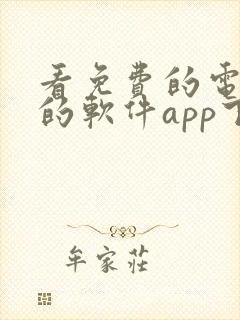 看免費的電
的軟件app下
牟家莊